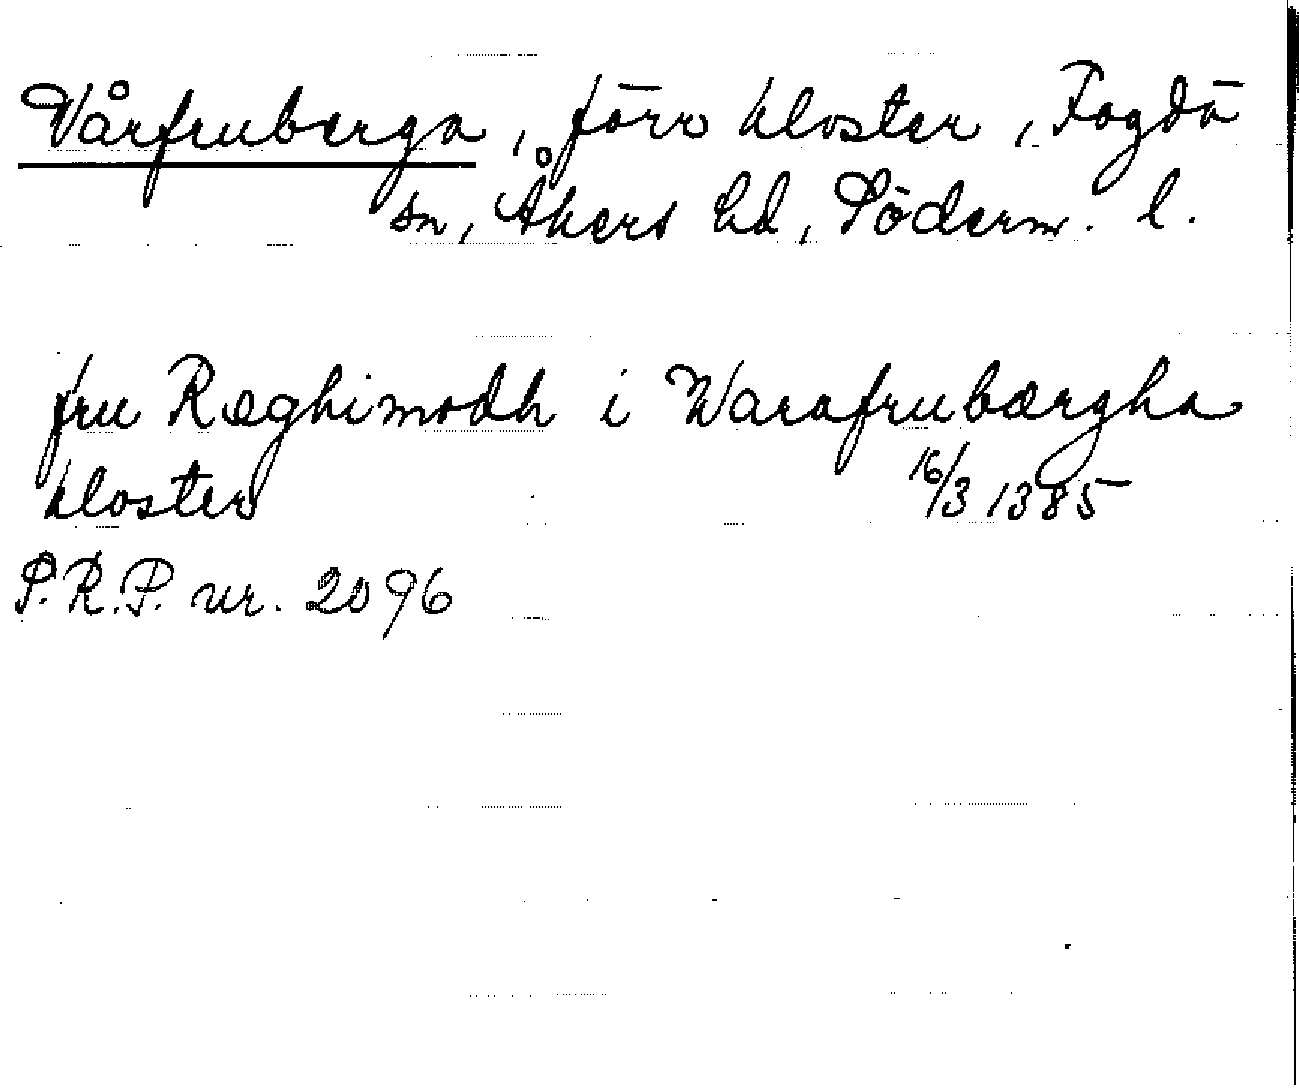 Vårfruberga, förr kloster, Fogdö
sn, Åkers hd, Söderm. l.
fru Ræghimodh i Warafrubærgha
kloster 16/3 1385
S.R.P. nr. 2096